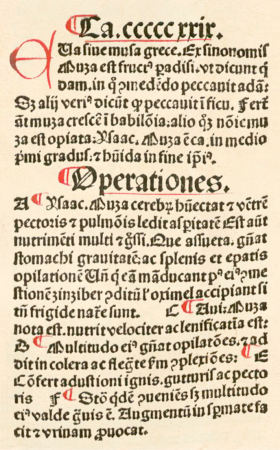 Ca. ccccc xxix.
Ula siue musa grece. Et sinonomis
Muza est fruct⁹ padisi. vt dicunt qͥ
dam. in qͦ jn medͦo peccauit adaz̄
Sz alij veri⁹ dicūt qͥ peccauit ī ficu. Ferr̄
aūt muza crescē ī habilōia: alio qͦz nōie mu
za est opiata: ysaac. Muza ē ca. in medio
pͥmi gradus: ⁊ hūida in fine ipͥus.
Operationes.
A Ysaac. Muza cerebꝝ hūectat ⁊ vētrē
pectoris ⁊ pulmōis ledit aspitatē Est aūt
nutrimēti multi ⁊ gͥssi. Que assueta. gn̄at
stomachi grauitatē: ac splenis ⁊ epatis
opilationē Un̄ qͥ eam māducant pͦ eiͥ⁹ me
stionē zinziber ꝯditū l'oximel accipiant si
tn̄ frigide nature sunt. C Aui: Muza
nota est. nutrit velociter ac lenificatīa est:
D Multitudo ei⁹ gn̄at opilatōes. ⁊ ad
dit in colera ac flegēte fͥm ꝯplexiōes: E
Cōfert adustioni ignis. gutturis ac pecto
ris F Stoͦ qͥdē ꝯueniēs sꝫ multitudo
ei⁹ valde gͣuis ē. Augmentū in spmate fa
cit ⁊ vrinam ꝓuocat.